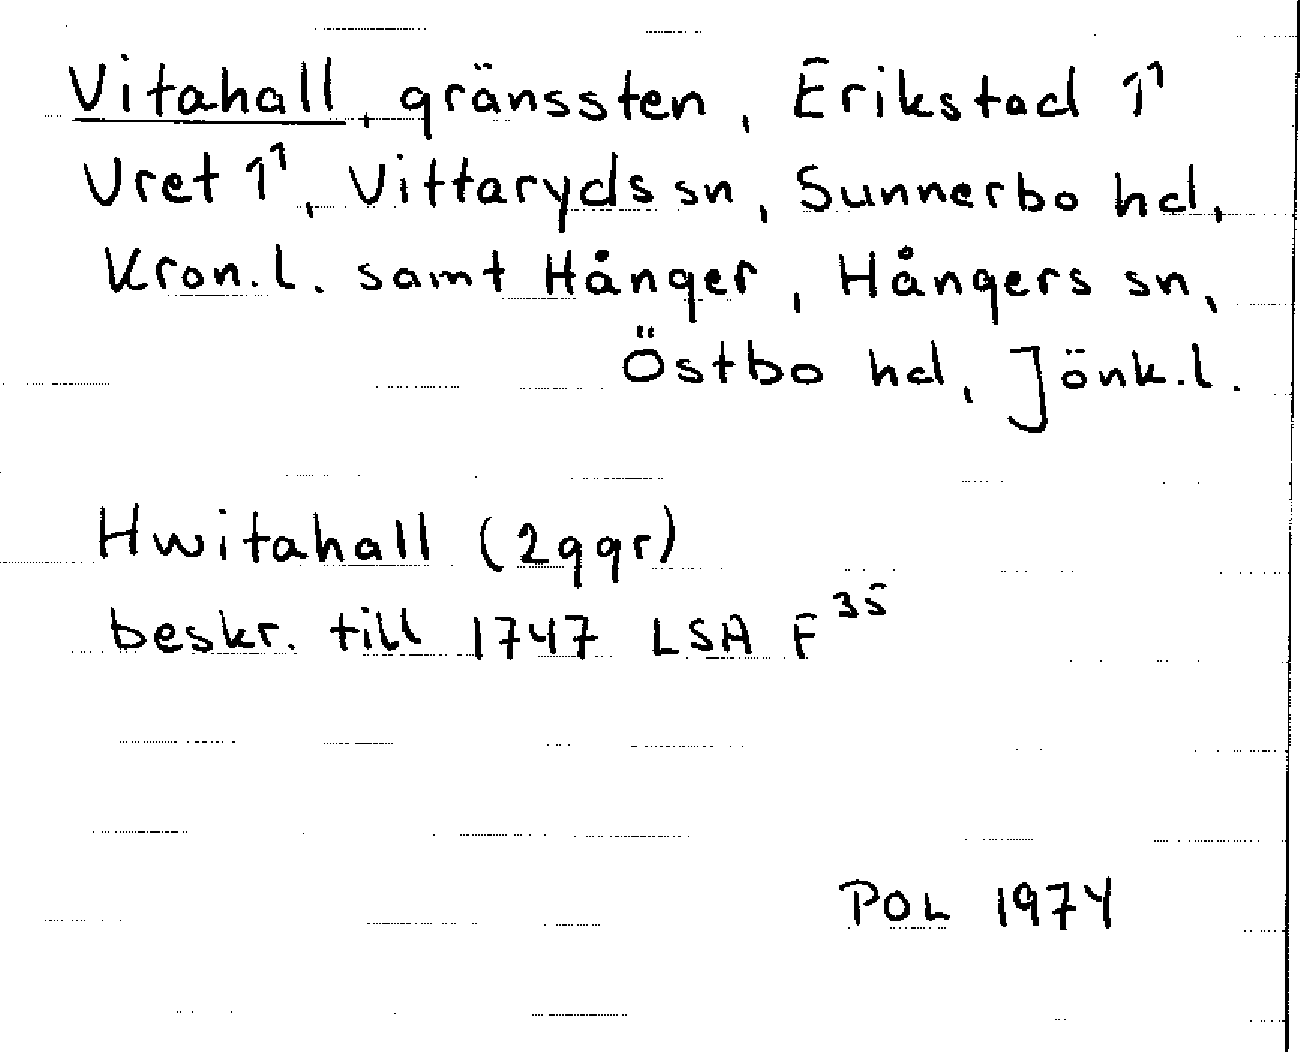 Vitahall, gränssten, Erikstad 1¹
Uret 1¹, Vittaryds sn, Sunnerbo hd,
Kron.l. samt Hånger, Hångers sn,
Östbo hd, Jönk.l.
Hwitahall (2ggr)
beskr. till 1747 LSA F³⁵
POL 1974